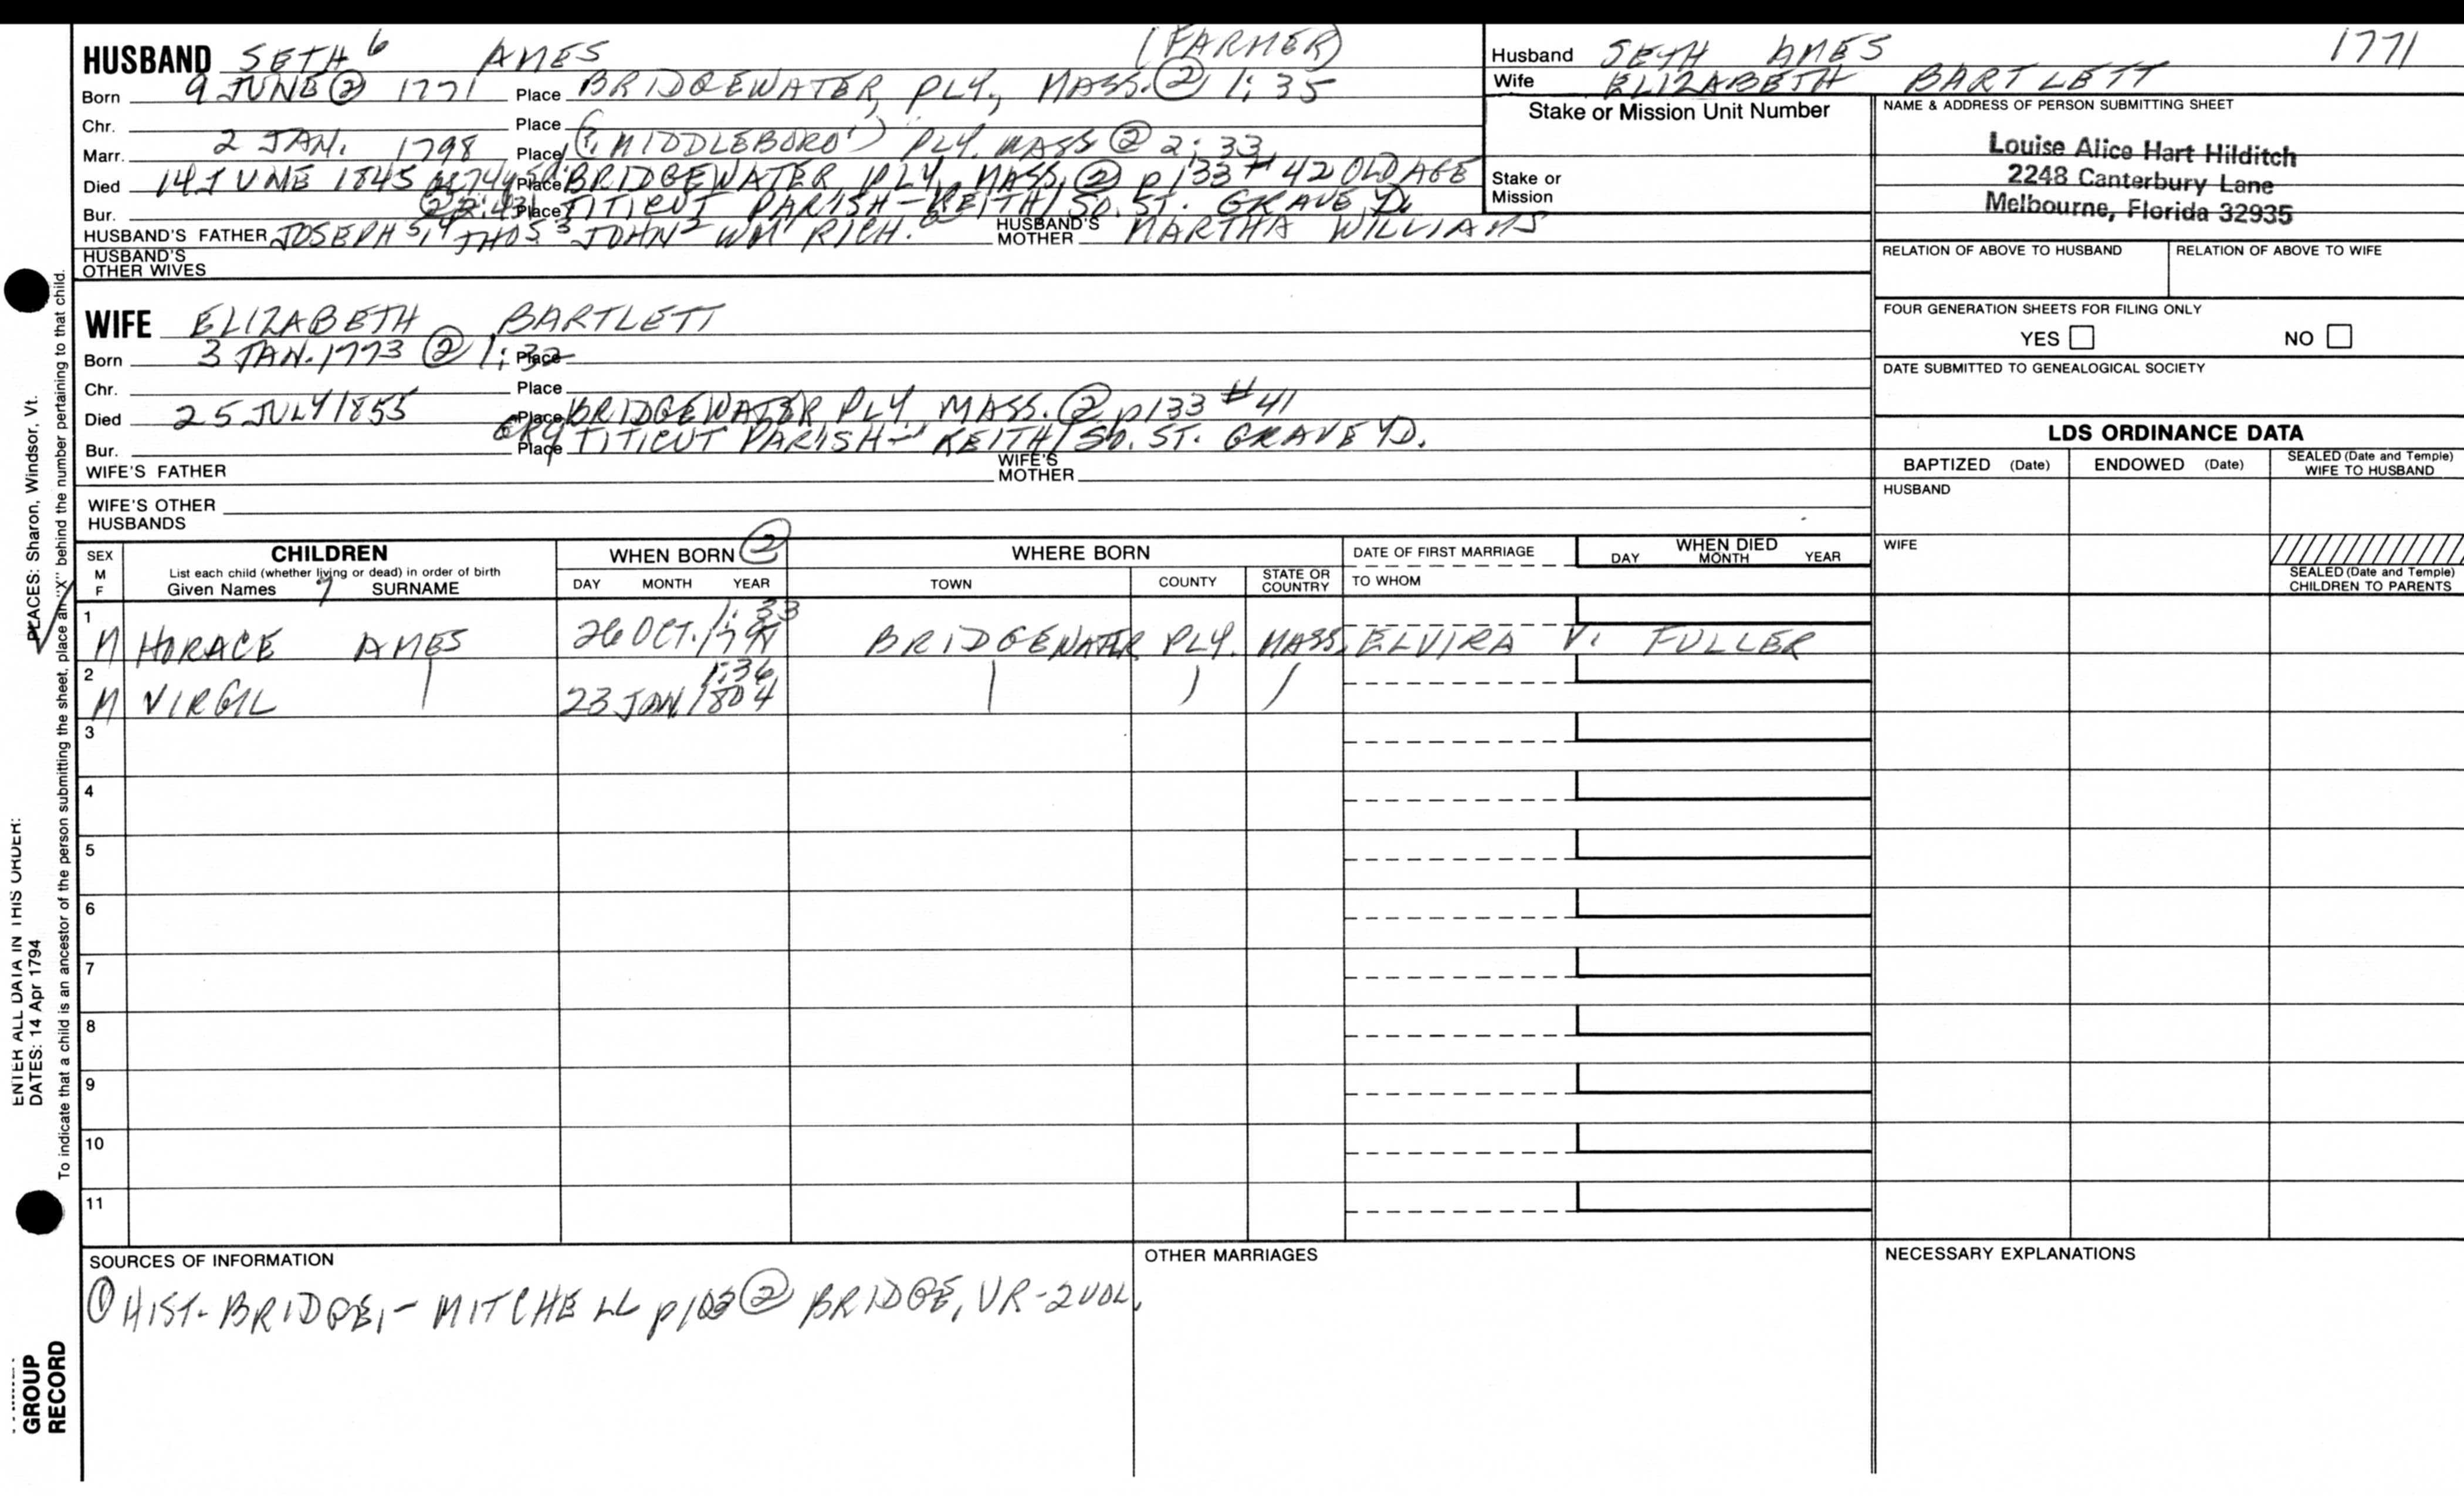 HUSBAND SETH 6 AMES (FARMER)
Born 9 JUNE ② 1771 Place BRIDGEWATER, PLY., MASS. ② 1:35
Chr. Place
Marr. 2 JAN. 1798 Place (? MIDDLEBORO') PLY. MASS ② 2:33
Died 14 JUNE 1845 Place BRIDGEWATER PLY. MASS, ② p133 #42 OLD AGE
Bur. Place TITICUT PARISH - KEITH/SO. ST. GRAVE YD.
HUSBAND'S FATHER JOSEPH 5, 4 THOS 3 JOHN 2 WM 1 RICH. HUSBAND'S MOTHER MARTHA WILLIAMS
HUSBAND'S OTHER WIVES
Husband SETH AMES 1771
Wife ELIZABETH BARTLETT
Stake or Mission Unit Number
Stake or Mission
NAME & ADDRESS OF PERSON SUBMITTING SHEET
Louise Alice Hart Hilditch
2248 Canterbury Lane
Melbourne, Florida 32935
RELATION OF ABOVE TO HUSBAND RELATION OF ABOVE TO WIFE
FOUR GENERATION SHEETS FOR FILING ONLY
YES NO
DATE SUBMITTED TO GENEALOGICAL SOCIETY
WIFE ELIZABETH BARTLETT
Born 3 JAN. 1773 ② 1:32 Place
Chr. Place
Died 25 JULY 1855 Place BRIDGEWATER PLY. MASS. ② p133 #41
Bur. Place TITICUT PARISH - KEITH/SO. ST. GRAVE YD.
WIFE'S FATHER WIFE'S MOTHER
WIFE'S OTHER HUSBANDS
LDS ORDINANCE DATA
BAPTIZED (Date) ENDOWED (Date) SEALED (Date and Temple) WIFE TO HUSBAND
HUSBAND
WIFE
SEALED (Date and Temple) CHILDREN TO PARENTS
SEX M F CHILDREN WHEN BORN ② WHERE BORN DATE OF FIRST MARRIAGE WHEN DIED
List each child (whether living or dead) in order of birth
Given Names 7 SURNAME DAY MONTH YEAR TOWN COUNTY STATE OR COUNTRY TO WHOM DAY MONTH YEAR
1 1:33
M HORACE AMES 26 OCT. BRIDGEWATER PLY. MASS. ELVIRA V. FULLER
2 1:36
M VIRGIL 23 JAN. 1804
3
4
5
6
7
8
9
10
11
SOURCES OF INFORMATION
① HIST. BRIDGE, - MITCHELL ② BRIDGE, VR - 2 VOL.
OTHER MARRIAGES
NECESSARY EXPLANATIONS
ENTER ALL DATA IN THIS ORDER:
DATES: 14 Apr 1794 PLACES: Sharon, Windsor, Vt.
To indicate that a child is an ancestor of the person submitting the sheet, place an "X" behind the number pertaining to that child.
GROUP
RECORD